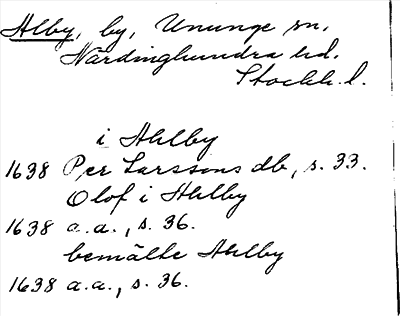 Alby, by, Ununge sn.
Närdinghundra hd.
Stockh. l.
i Ahlby
1638 Per Larssons db, s. 33.
Olof i Ahlby
1638 a.a., s. 36.
bemälte Ahlby
1638 a.a., s. 36.